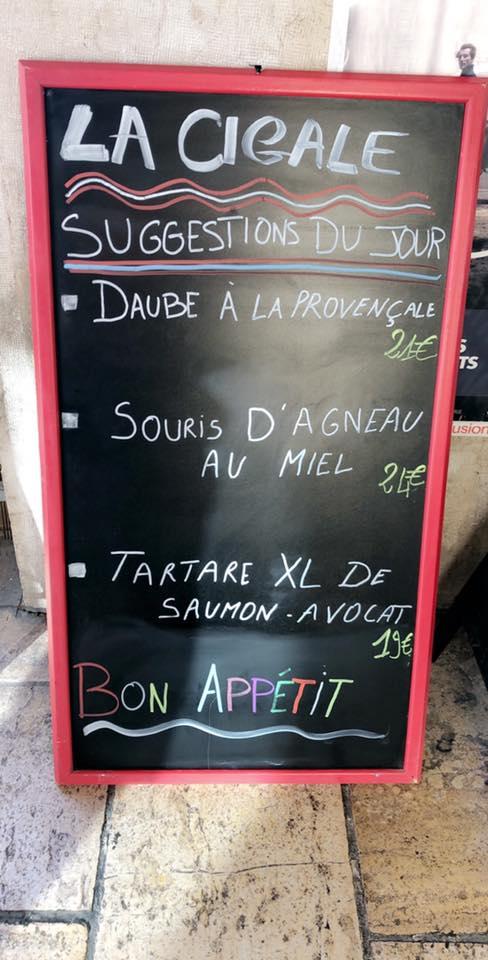 LA CIGALE
SUGGESTIONS DU JOUR
DAUBE À LA PROVENÇALE
21€
SOURIS D'AGNEAU
AU MIEL
24€
TARTARE XL DE
SAUMON - AVOCAT
19€
BON APPÉTIT
S
TS
usion